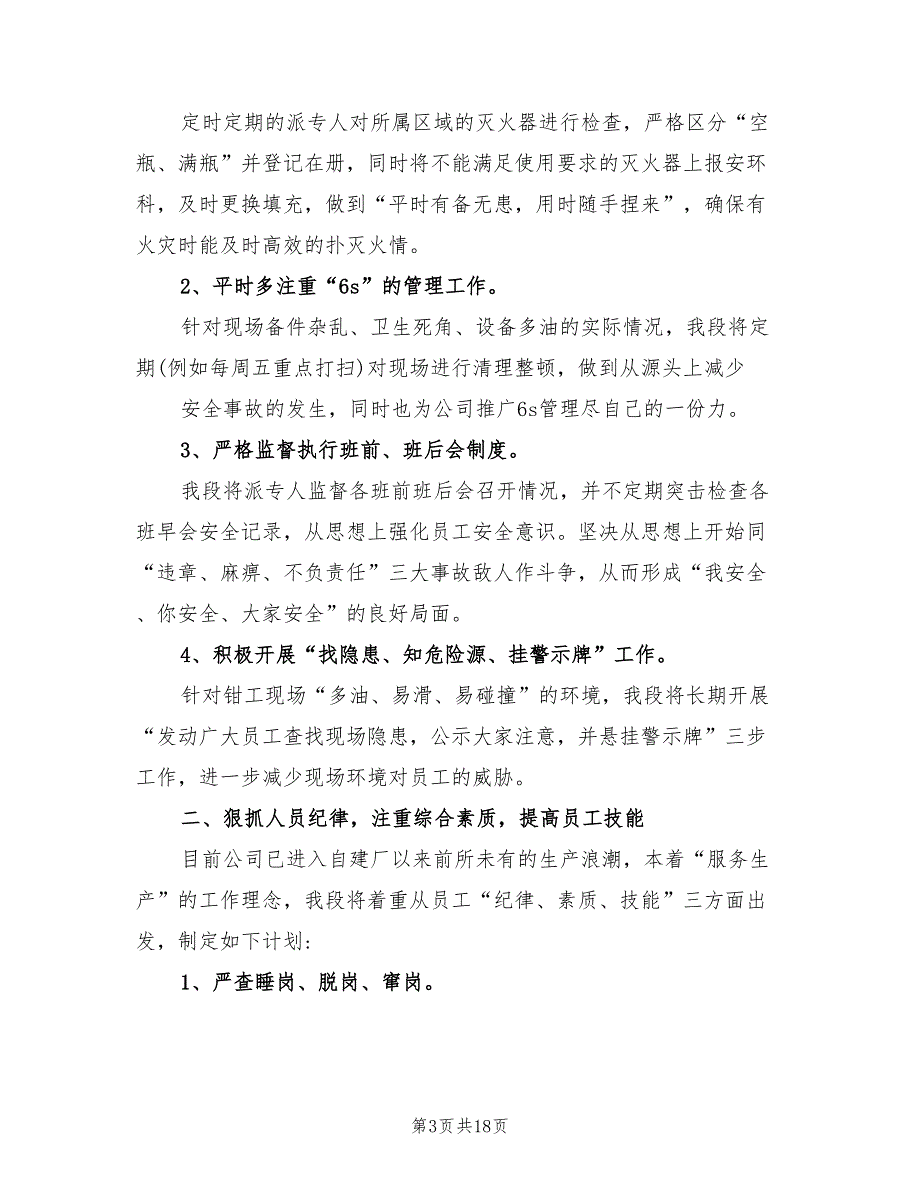 定时定期的派专人对所属区域的灭火器进行检查，严格区分“空
瓶、满瓶”并登记在册，同时将不能满足使用要求的灭火器上报安环
科，及时更换填充，做到“平时有备无患，用时随手捏来”，确保有
火灾时能及时高效的扑灭火情。
2、平时多注重“6s”的管理工作。
针对现场备件杂乱、卫生死角、设备多油的实际情况，我段将定
期(例如每周五重点打扫)对现场进行清理整顿，做到从源头上减少
安全事故的发生，同时也为公司推广6s管理尽自己的一份力。
3、严格监督执行班前、班后会制度。
我段将派专人监督各班前班后会召开情况，并不定期突击检查各
班早会安全记录，从思想上强化员工安全意识。坚决从思想上开始同
“违章、麻痹、不负责任”三大事故敌人作斗争，从而形成“我安全
、你安全、大家安全”的良好局面。
4、积极开展“找隐患、知危险源、挂警示牌”工作。
针对钳工现场“多油、易滑、易碰撞”的环境，我段将长期开展
“发动广大员工查找现场隐患，公示大家注意，并悬挂警示牌”三步
工作，进一步减少现场环境对员工的威胁。
二、狠抓人员纪律，注重综合素质，提高员工技能
目前公司已进入自建厂以来前所未有的生产浪潮，本着“服务生
产”的工作理念，我段将着重从员工“纪律、素质、技能”三方面出
发，制定如下计划:
1、严查睡岗、脱岗、窜岗。
第3页共18页